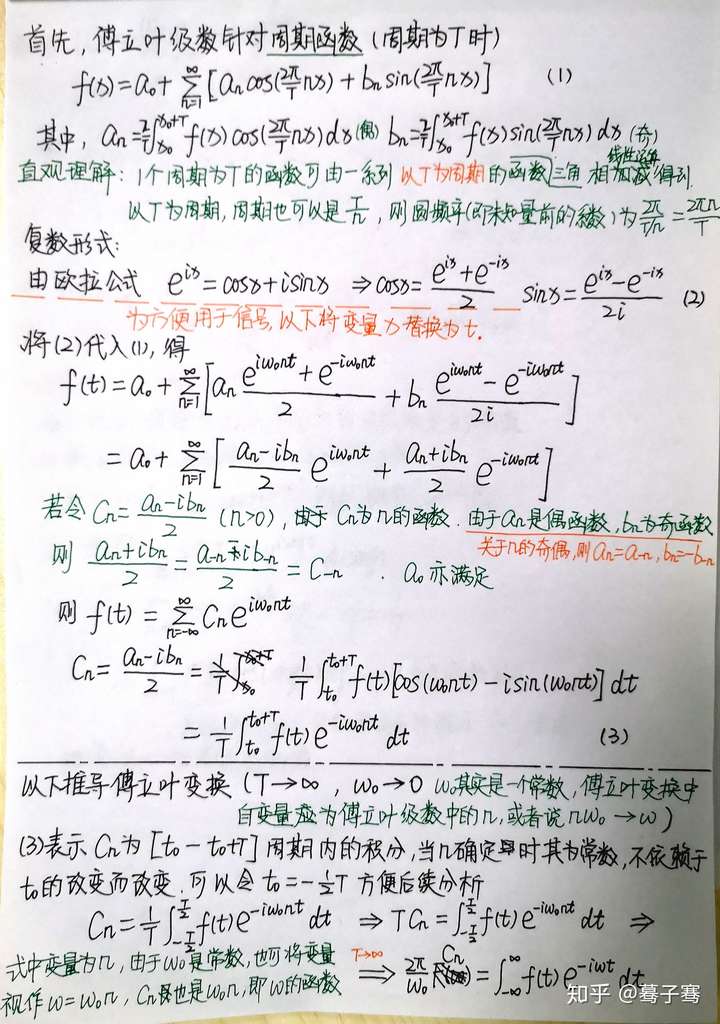 首先,傅立叶级数针对周期函数(周期为T时)
f(x)=a₀+∑_{n=1}^{∞}[aₙcos(2π/T nx)+bₙsin(2π/T nx)] (1)
其中, aₙ=2/T∫_{x₀}^{x₀+T}f(x)cos(2π/T nx)dx(偶) bₙ=2/T∫_{x₀}^{x₀+T}f(x)sin(2π/T nx)dx(奇)
直观理解: 1个周期为T的函数可由一系列以T为周期的函数三角 相加减得到.
以T为周期,周期也可以是T/n, 则圆频率(即未知量前的系数)为 2π/(T/n)=2πn/T
复数形式:
由欧拉公式 e^{ix}=cosx+isinx ⇒cosx=(e^{ix}+e^{-ix})/2 sinx=(e^{ix}-e^{-ix})/2i (2)
为方便用于信号,以下将变量x替换为t.
将(2)代入(1),得
f(t)=a₀+∑_{n=1}^{∞}[aₙ(e^{iω₀nt}+e^{-iω₀nt})/2+bₙ(e^{iω₀nt}-e^{-iω₀nt})/2i]
=a₀+∑_{n=1}^{∞}[(aₙ-ibₙ)/2 e^{iω₀nt}+(aₙ+ibₙ)/2 e^{-iω₀nt}]
若令Cₙ=(aₙ-ibₙ)/2 (n>0), 由于Cₙ为n的函数. 由于aₙ是偶函数,bₙ为奇函数
关于n的奇偶,则aₙ=a₋ₙ, bₙ=-b₋ₙ
则 (aₙ+ibₙ)/2=(a₋ₙ-ib₋ₙ)/2=C₋ₙ . a₀亦满足
则f(t)=∑_{n=-∞}^{∞}Cₙe^{iω₀nt}
Cₙ=(aₙ-ibₙ)/2= 1/T∫_{t₀}^{t₀+T}f(t)[cos(ω₀nt)-isin(ω₀nt)]dt
=1/T∫_{t₀}^{t₀+T}f(t)e^{-iω₀nt}dt (3)
以下推导傅立叶变换(T→∞, ω₀→0 ω₀其实是一个常数,傅立叶变换中
自变量应为傅立叶级数中的n,或者说nω₀→ω)
(3)表示Cₙ为[t₀-t₀+T]周期内的积分,当n确定时其为常数,不依赖于
t₀的改变而改变.可以令t₀=-½T方便后续分析
Cₙ=1/T∫_{-T/2}^{T/2}f(t)e^{-iω₀nt}dt ⇒TCₙ=∫_{-T/2}^{T/2}f(t)e^{-iω₀nt}dt ⇒
式中变量为n,由于ω₀是常数,也可将变量
视作ω=ω₀n, Cₙ也是ω₀n,即ω的函数
T→∞ ⇒ 2π/ω₀ Cₙ=∫_{-∞}^{∞}f(t)e^{-iωt}dt
知乎 @蓦子骞